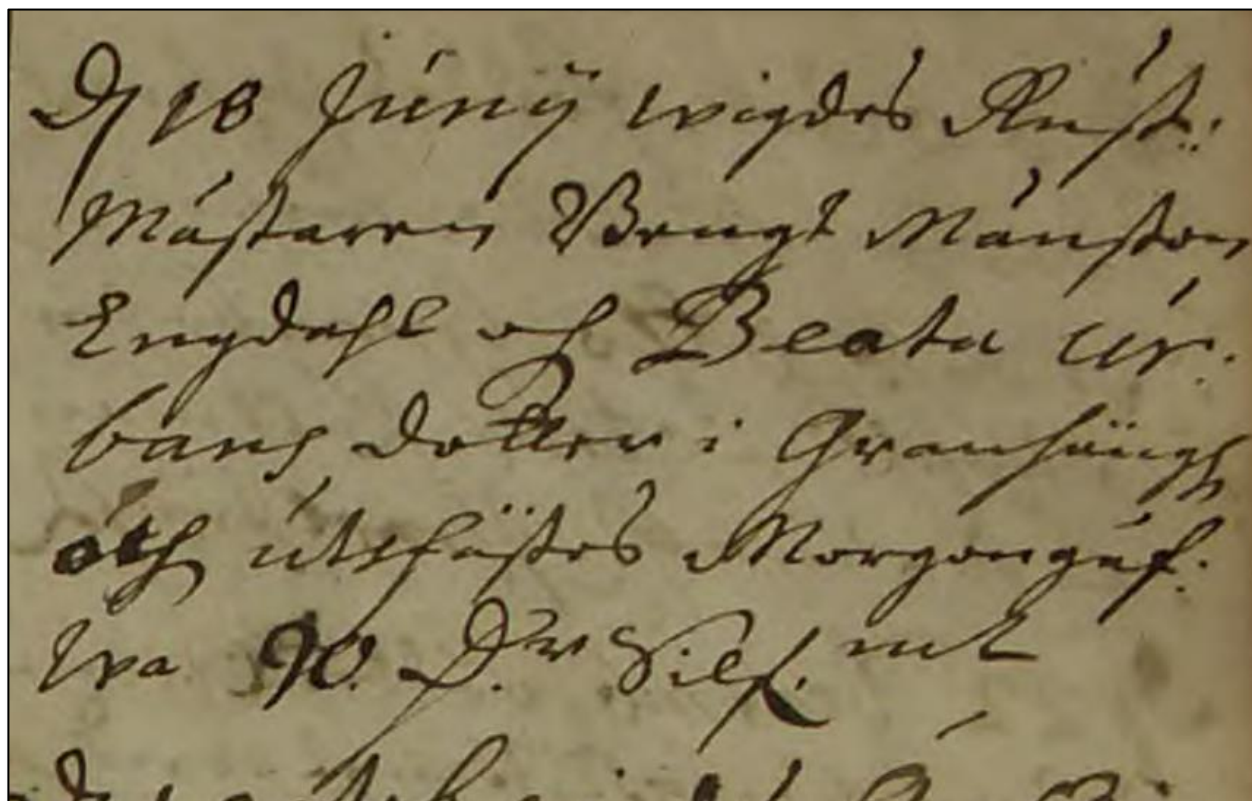 D 18 Junÿ wigdes Rust:
Mästaren Bengt Månsson
Engdahl och Beata Ur:
bans dotter i Granhängh
och uttfästes Morgongåf:
wa 90. D:r Silf. mt